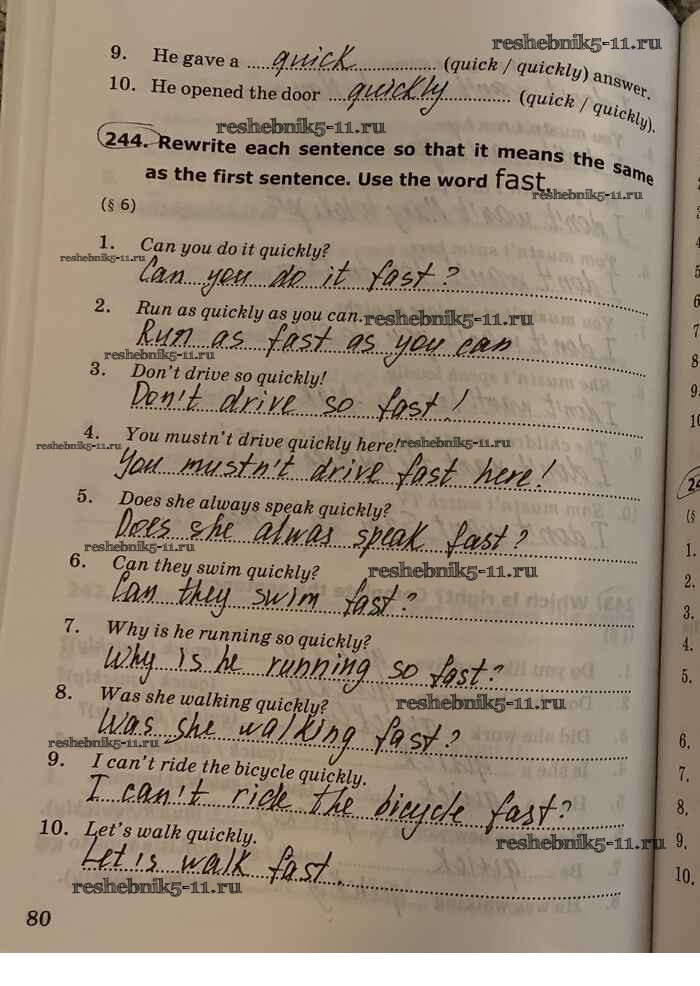 reshebnik5-11.ru
9. He gave a quick (quick / quickly) answer.
10. He opened the door quickly (quick / quickly).
reshebnik5-11.ru
244. Rewrite each sentence so that it means the same
as the first sentence. Use the word fast.
reshebnik5-11.ru
(§ 6)
1. Can you do it quickly?
reshebnik5-11.ru
Can you do it fast?
2. Run as quickly as you can. reshebnik5-11.ru
Run as fast as you can
reshebnik5-11.ru
3. Don't drive so quickly!
Don't drive so fast!
4. You mustn't drive quickly here! reshebnik5-11.ru
reshebnik5-11.ru
You mustn't drive fast here!
5. Does she always speak quickly?
Does she alwas speak fast?
reshebnik5-11.ru
6. Can they swim quickly? reshebnik5-11.ru
Can they swim fast?
7. Why is he running so quickly?
Why is he running so fast?
8. Was she walking quickly? reshebnik5-11.ru
Was she walking fast?
reshebnik5-11.ru
9. I can't ride the bicycle quickly.
I can't ride the bicycle fast?
10. Let's walk quickly. reshebnik5-11.ru
Let's walk fast.
reshebnik5-11.ru
80
(§
1.
2.
3.
4.
5.
6.
7.
8.
9.
10.